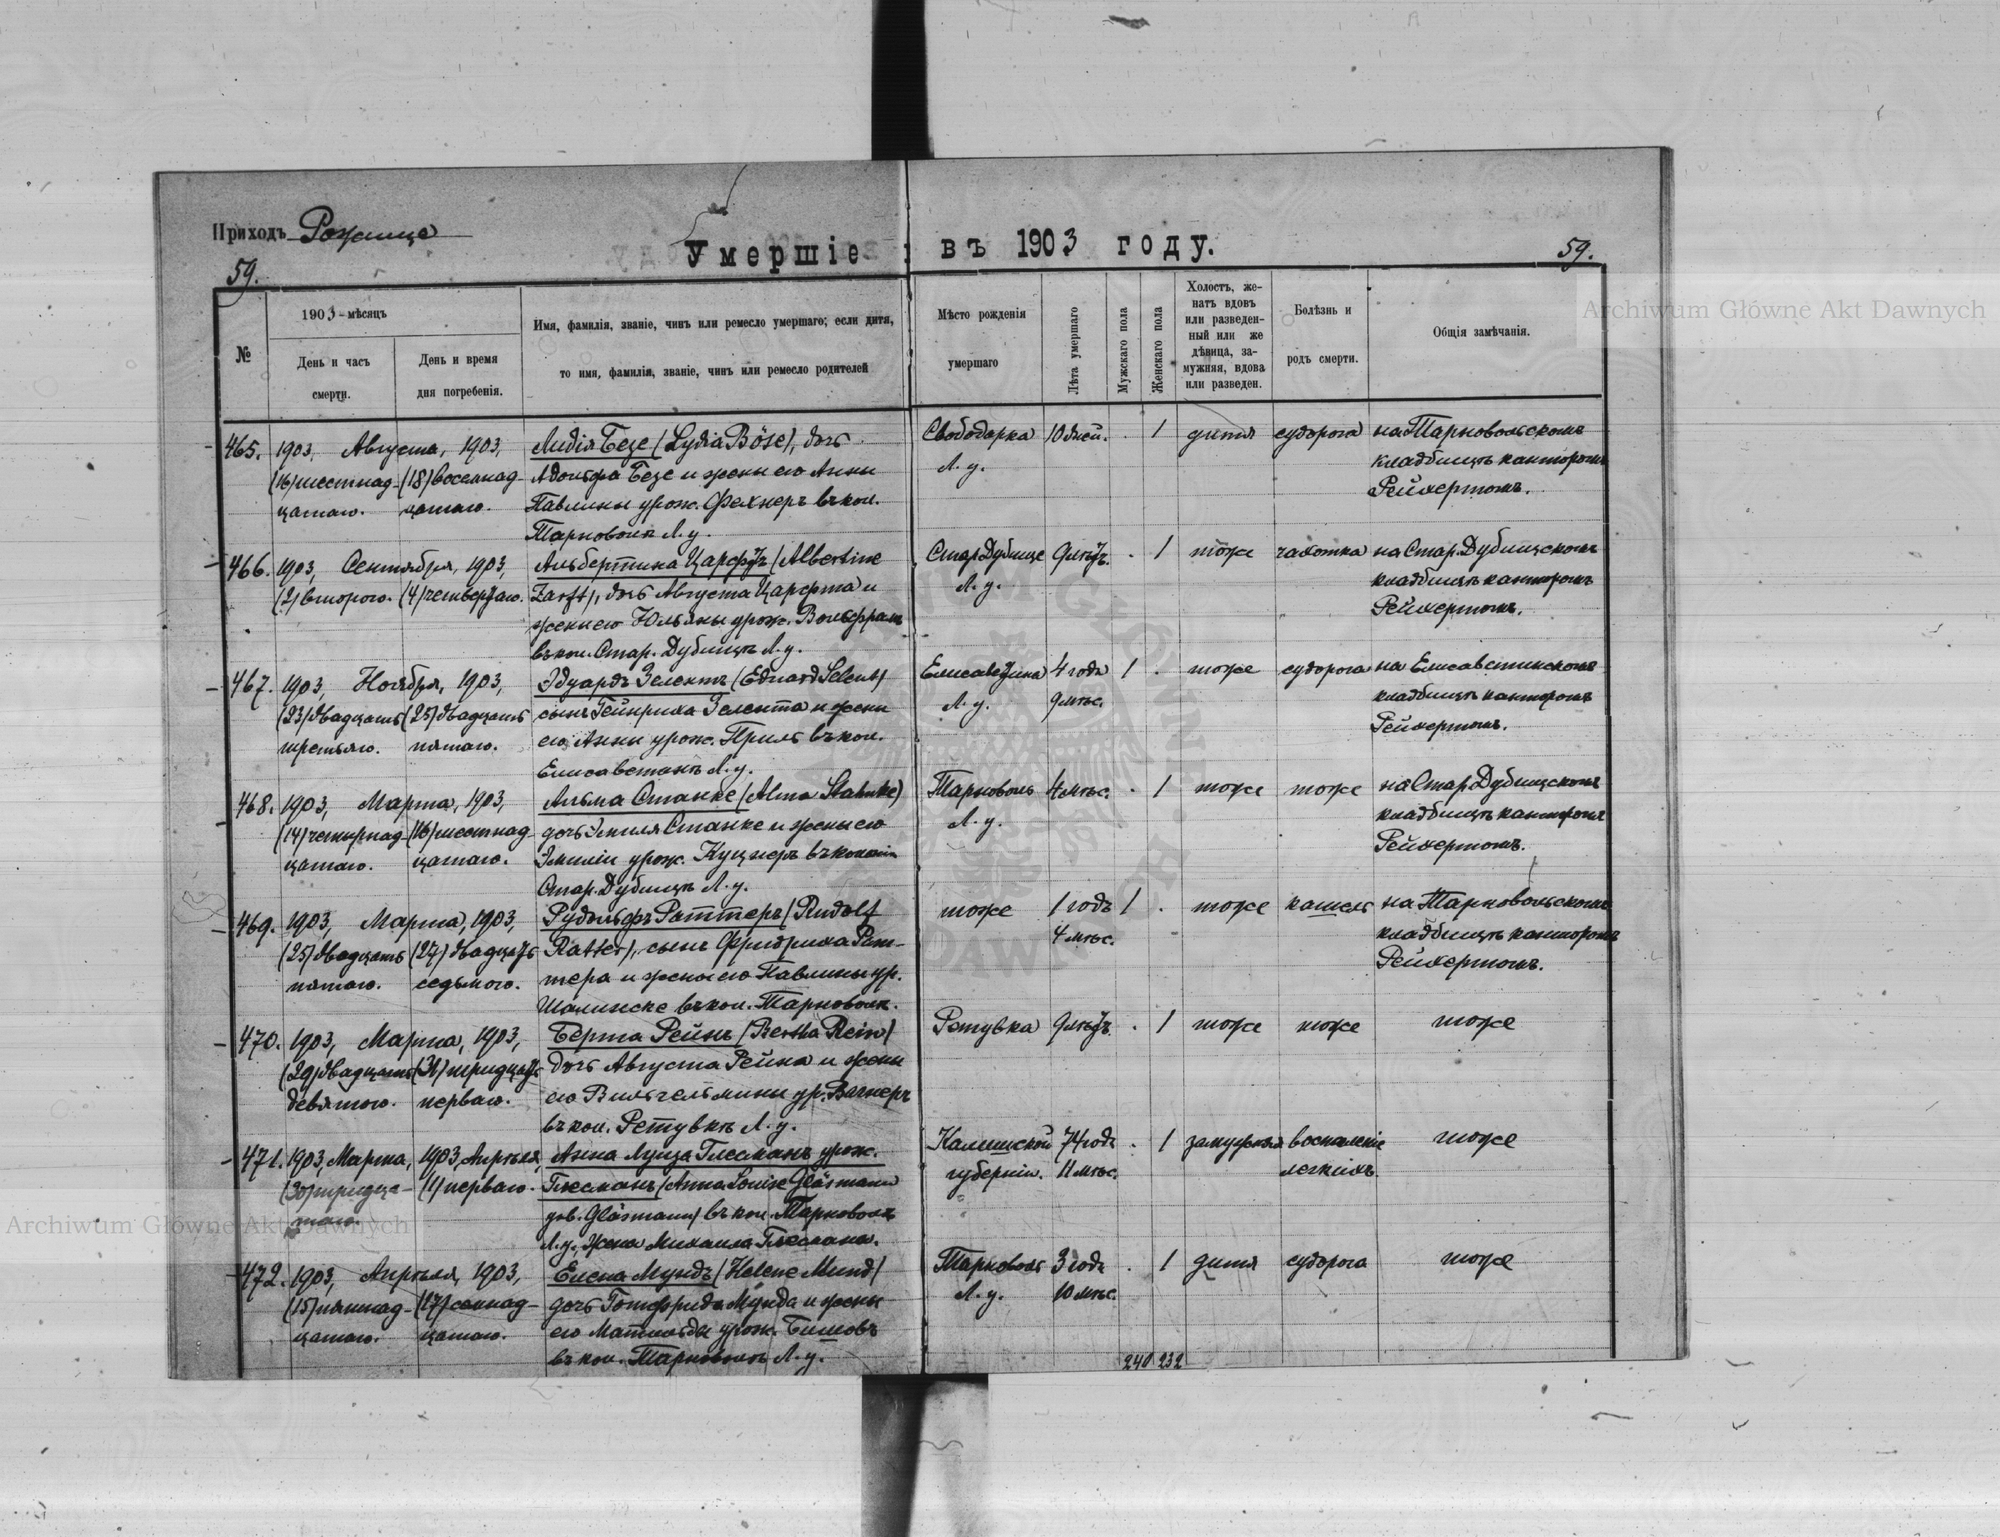 Приходъ Рожище
Умершіе въ 1903 году.
59.
59.
№
1903-мѣсяцъ
День и часъ
смерти.
День и время
дня погребенія.
Имя, фамилія, званіе, чинъ или ремесло умершаго; если дитя,
то имя, фамилія, званіе, чинъ или ремесло родителей
Мѣсто рожденія
умершаго
Лѣта умершаго
Мужскаго пола
Женскаго пола
Холостъ, же-
натъ вдовъ
или разведен-
ный или же
дѣвица, за-
мужняя, вдова
или разведен.
Болѣзнь и
родъ смерти.
Общія замѣчанія.
465. 1903, Августа, 1903, Лидія Безе (Lydia Böse), дочь Свободарка 10 дней. . 1 дитя судорога на Тарновольскомъ
(16) шестнад- (18) восемнад- Адольфа Безе и жены его Анны Л. у. кладбищѣ канторомъ
цатаго. цатаго. Павлины урож. Фехнеръ въ кол. Рейхертомъ.
Тарноволя Л. у.
466. 1903, Сентября, 1903, Альбертина Царфтъ (Albertine Стар. Дубище 9 мѣс. . 1 тоже чахотка на Стар. Дубищскомъ
(2) второго. (4) четвертаго. Zarft), дочь Августа Царфта и Л. у. кладбищѣ канторомъ
жены его Юльяны урож. Вольфрамъ Рейхертомъ.
въ кол. Стар. Дубищѣ Л. у.
467. 1903, Ноября, 1903, Эдуардъ Зелентъ (Eduard Selent) Елисаветина 4 года 1 . тоже судорога на Елисаветинскомъ
(23) двадцать (25) двадцать сынъ Гейнриха Зелента и жены Л. у. 9 мѣс. кладбищѣ канторомъ
третьяго. пятаго. его Анны урож. Приль въ кол. Рейхертомъ.
Елисаветинѣ Л. у.
468. 1903, Марта, 1903, Альма Станке (Alma Stahnke) Тарноволь 4 мѣс. . 1 тоже тоже на Стар. Дубищскомъ
(14) четырнад- (16) шестнад- дочь Эмиля Станке и жены его Л. у. кладбищѣ канторомъ
цатаго. цатаго. Эмиліи урож. Куцнеръ въ колоніи Рейхертомъ.
Стар. Дубищѣ Л. у.
469. 1903, Марта, 1903, Рудольфъ Раттеръ (Rudolf тоже 1 годъ 1 . тоже кашель на Тарновольскомъ
(25) двадцать (27) двадцать Ratter), сынъ Фридриха Рат- 4 мѣс. кладбищѣ канторомъ
пятаго. седьмого. тера и жены его Павлины ур. Рейхертомъ.
Шалинске въ кол. Тарноволѣ.
470. 1903, Марта, 1903, Берта Рейнъ (Bertha Rein) Ретувка 9 мѣс. . 1 тоже тоже тоже
(29) двадцать (31) тридцать дочь Августа Рейна и жены
девятого. перваго. его Вильгельмины ур. Вагнеръ
въ кол. Ретувкѣ Л. у.
471. 1903, Марта, 1903, Апрѣля, Анна Луиза Глесманъ урож. Калишской 74 года . 1 замужняя воспаленіе тоже
(30) тридца- (1) перваго. Глесманъ (Anna Louise Gläsmann губерніи. 11 мѣс. легкихъ.
таго. geb. Gläsmann) въ кол. Тарноволѣ
Л. у., жена Михаила Глесмана.
472. 1903, Апрѣля, 1903, Елена Мундъ (Helene Mund) Тарноволь 3 года . 1 дитя судорога тоже
(15) пятнад- (17) семнад- дочь Готфрида Мунда и жены Л. у. 10 мѣс.
цатаго. цатаго. его Матильды урож. Бишовъ
въ кол. Тарноволѣ Л. у.
240 232
Archiwum Główne Akt Dawnych
Archiwum Główne Akt Dawnych